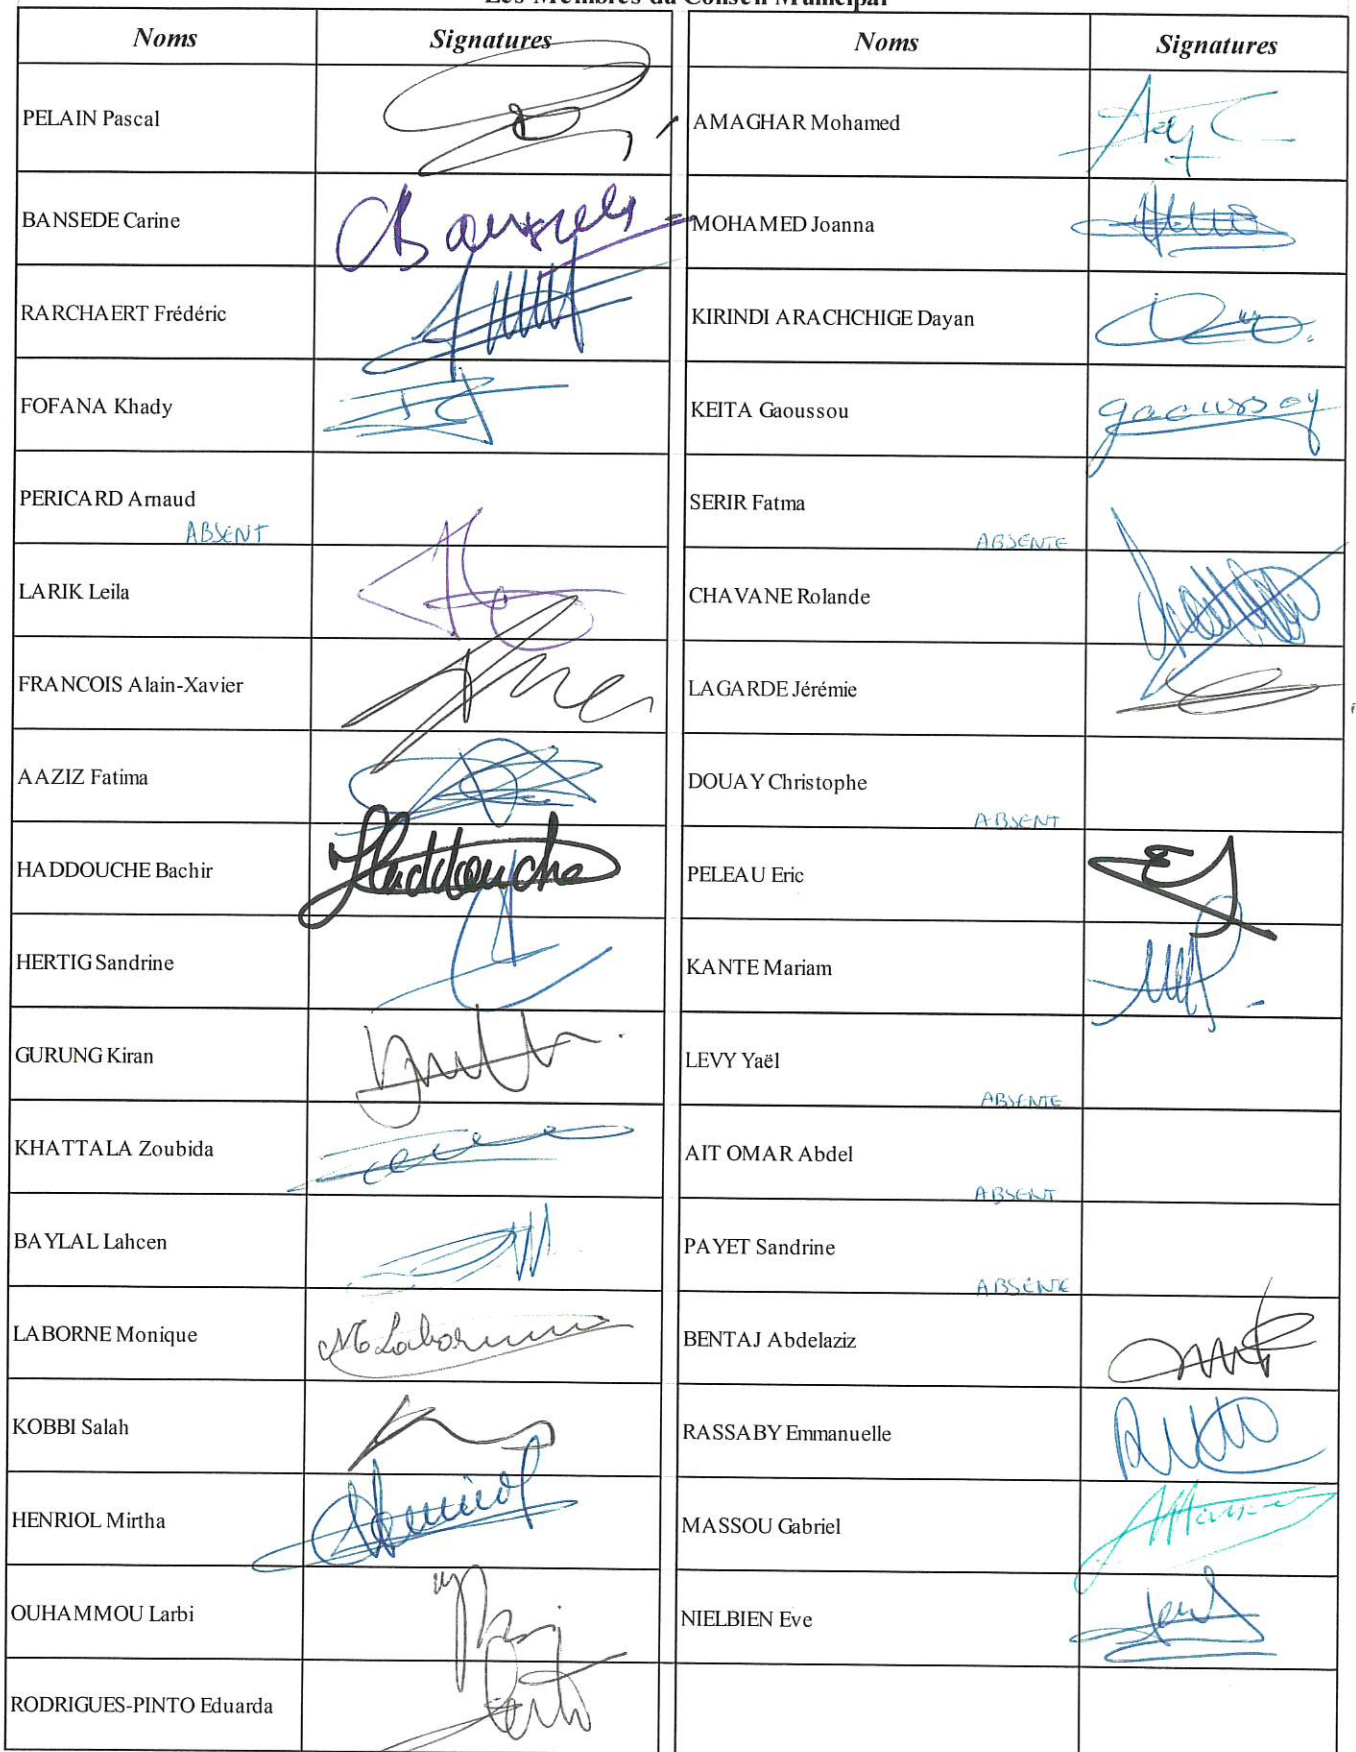 Les Membres du Conseil Municipal
Noms Signatures
PELAIN Pascal
BANSEDE Carine
RARCHAERT Frédéric
FOFANA Khady
PERICARD Arnaud
ABSENT
LARIK Leila
FRANCOIS Alain-Xavier
AAZIZ Fatima
HADDOUCHE Bachir
Haddouche
HERTIG Sandrine
GURUNG Kiran
KHATTALA Zoubida
BAYLAL Lahcen
LABORNE Monique
KOBBI Salah
HENRIOL Mirtha
OUHAMMOU Larbi
RODRIGUES-PINTO Eduarda
Noms Signatures
AMAGHAR Mohamed
MOHAMED Joanna
KIRINDI ARACHCHIGE Dayan
KEITA Gaoussou
gaoussou
SERIR Fatma
ABSENTE
CHAVANE Rolande
LAGARDE Jérémie
DOUAY Christophe
ABSENT
PELEAU Eric
KANTE Mariam
LEVY Yaël
ABSENTE
AIT OMAR Abdel
ABSENT
PAYET Sandrine
ABSENTE
BENTAJ Abdelaziz
RASSABY Emmanuelle
MASSOU Gabriel
NIELBIEN Eve